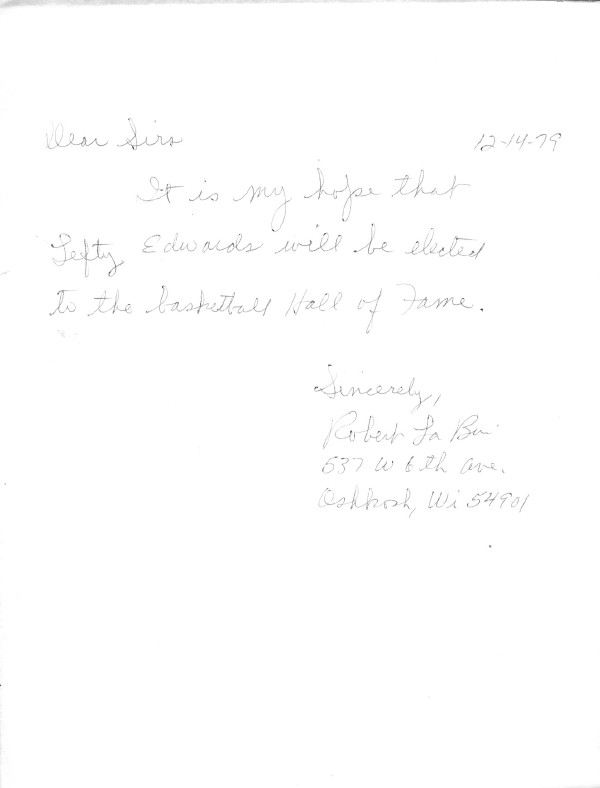 Dear Sirs 12-14-79
It is my hope that
Lefty Edwards will be elected
to the basketball Hall of Fame.
Sincerely,
Robert La
537 W 6th ave.
Oshkosh, Wi 54901